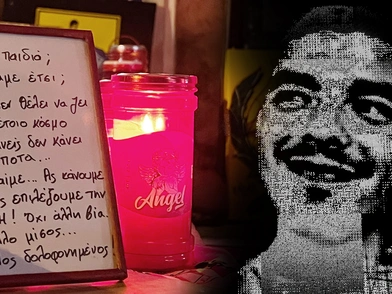 παιδιά;
με έτσι;
ει θέλει να ζει
έτοιο κόσμο
νείς δεν κάνει
ποτα...
αιμε... Ας κάνουμε
ς επιλέξουμε την
Η! Όχι άλλη βία.
λο μίσος...
ος δολοφονημένος
Angel